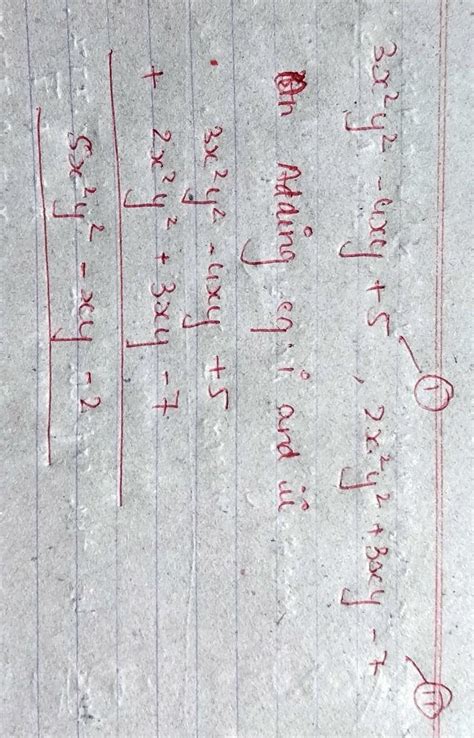 3x²y² - 4xy + 5 , 2x²y² + 3xy - 7
(i) (ii)
On Adding eq. i and ii
3x²y² - 4xy + 5
+ 2x²y² + 3xy - 7
5x²y² - xy - 2